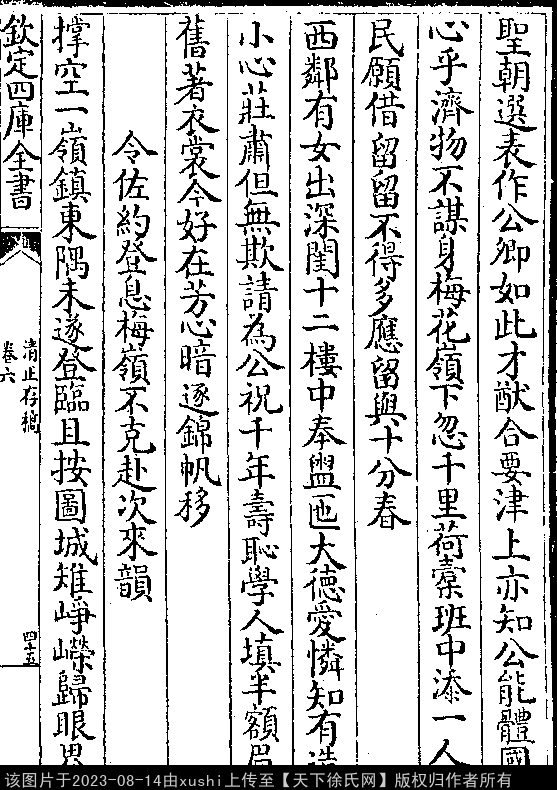 聖朝選表作公卿如此才猷合要津上亦知公能體國
心乎濟物不謀身梅花嶺下忽千里荷橐班中添一人
民願借留留不得多應留與十分春
西鄰有女出深閨十二樓中奉盥匜大德愛憐知有造
小心莊肅但無欺請為公祝千年壽恥學人填半額眉
舊著衣裳今好在芳心暗逐錦帆移
令佐約登息梅嶺不克赴次來韻
撑空一嶺鎮東隅未遂登臨且按圖城雉崢嶸歸眼界
欽定四庫全書
清正存稿
卷六
四十五
该图片于2023-08-14由xushi上传至【天下徐氏网】版权归作者所有